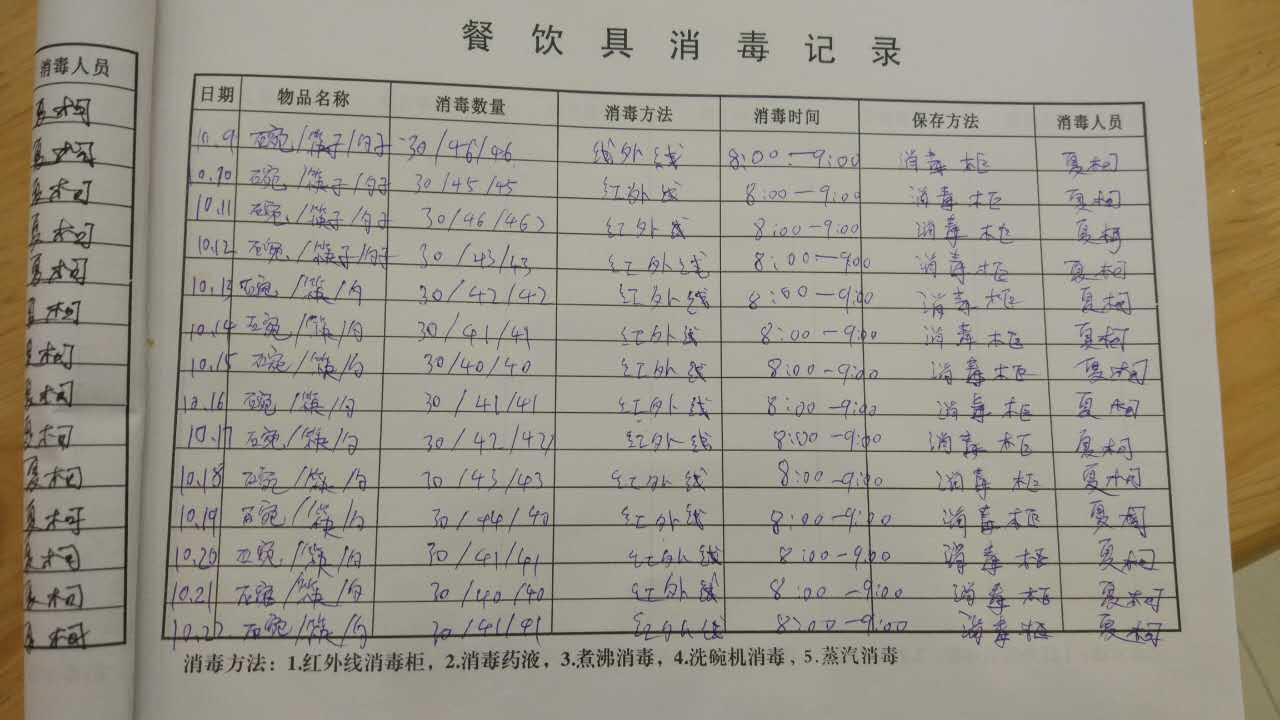 餐饮具消毒记录
消毒人员
日期 物品名称 消毒数量 消毒方法 消毒时间 保存方法 消毒人员
10.9 碗/筷子/勺子 30/46/46 线外线 8:00-9:00 消毒柜 夏柯
10.10 碗/筷子/勺子 30/45/45 红外线 8:00-9:00 消毒柜 夏柯
10.11 碗/筷子/勺子 30/46/46 红外线 8:00-9:00 消毒柜 夏柯
10.12 碗/筷子/勺子 30/43/43 红外线 8:00-9:00 消毒柜 夏柯
10.13 碗/筷/勺 30/42/42 红外线 8:00-9:00 消毒柜 夏柯
10.14 碗/筷/勺 30/41/41 红外线 8:00-9:00 消毒柜 夏柯
10.15 碗/筷/勺 30/40/40 红外线 8:00-9:00 消毒柜 夏柯
10.16 碗/筷/勺 30/41/41 红外线 8:00-9:00 消毒柜 夏柯
10.17 碗/筷/勺 30/42/42 红外线 8:00-9:00 消毒柜 夏柯
10.18 碗/筷/勺 30/43/43 红外线 8:00-9:00 消毒柜 夏柯
10.19 碗/筷/勺 30/44/40 红外线 8:00-9:00 消毒柜 夏柯
10.20 碗/筷/勺 30/41/41 红外线 8:00-9:00 消毒柜 夏柯
10.21 碗/筷/勺 30/40/40 红外线 8:00-9:00 消毒柜 夏柯
10.22 碗/筷/勺 30/41/41 红外线 8:00-9:00 消毒柜 夏柯
消毒方法：1.红外线消毒柜，2.消毒药液，3.煮沸消毒，4.洗碗机消毒，5.蒸汽消毒
夏柯
夏柯
夏柯
夏柯
夏柯
夏柯
夏柯
夏柯
夏柯
夏柯
夏柯
夏柯
夏柯
夏柯